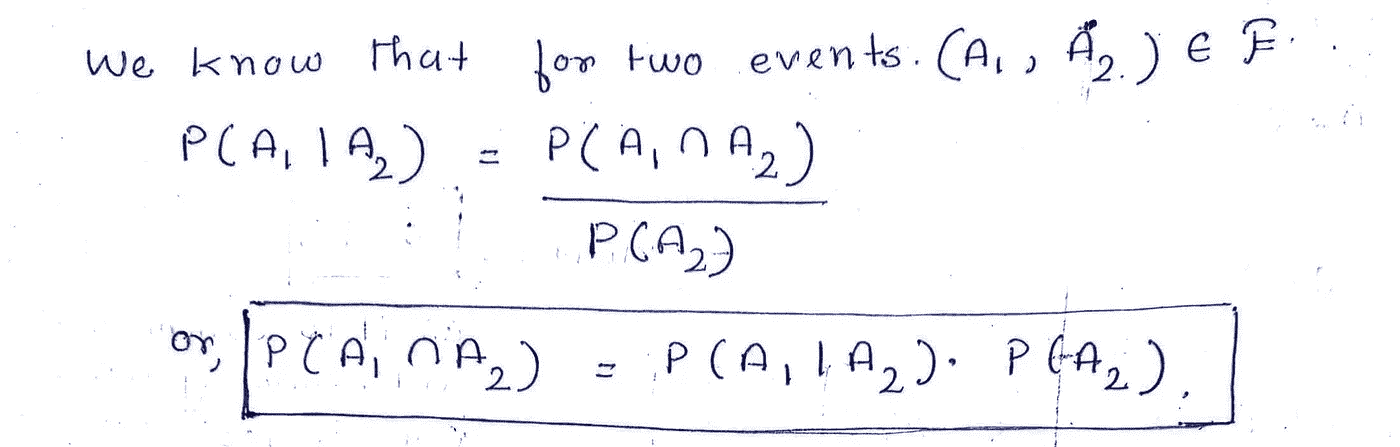 We know that for two events. (A₁, A₂.) ∈ F.
P(A₁ | A₂) = P(A₁ ∩ A₂)
P(A₂)
or, P(A₁ ∩ A₂) = P(A₁ | A₂). P(A₂).